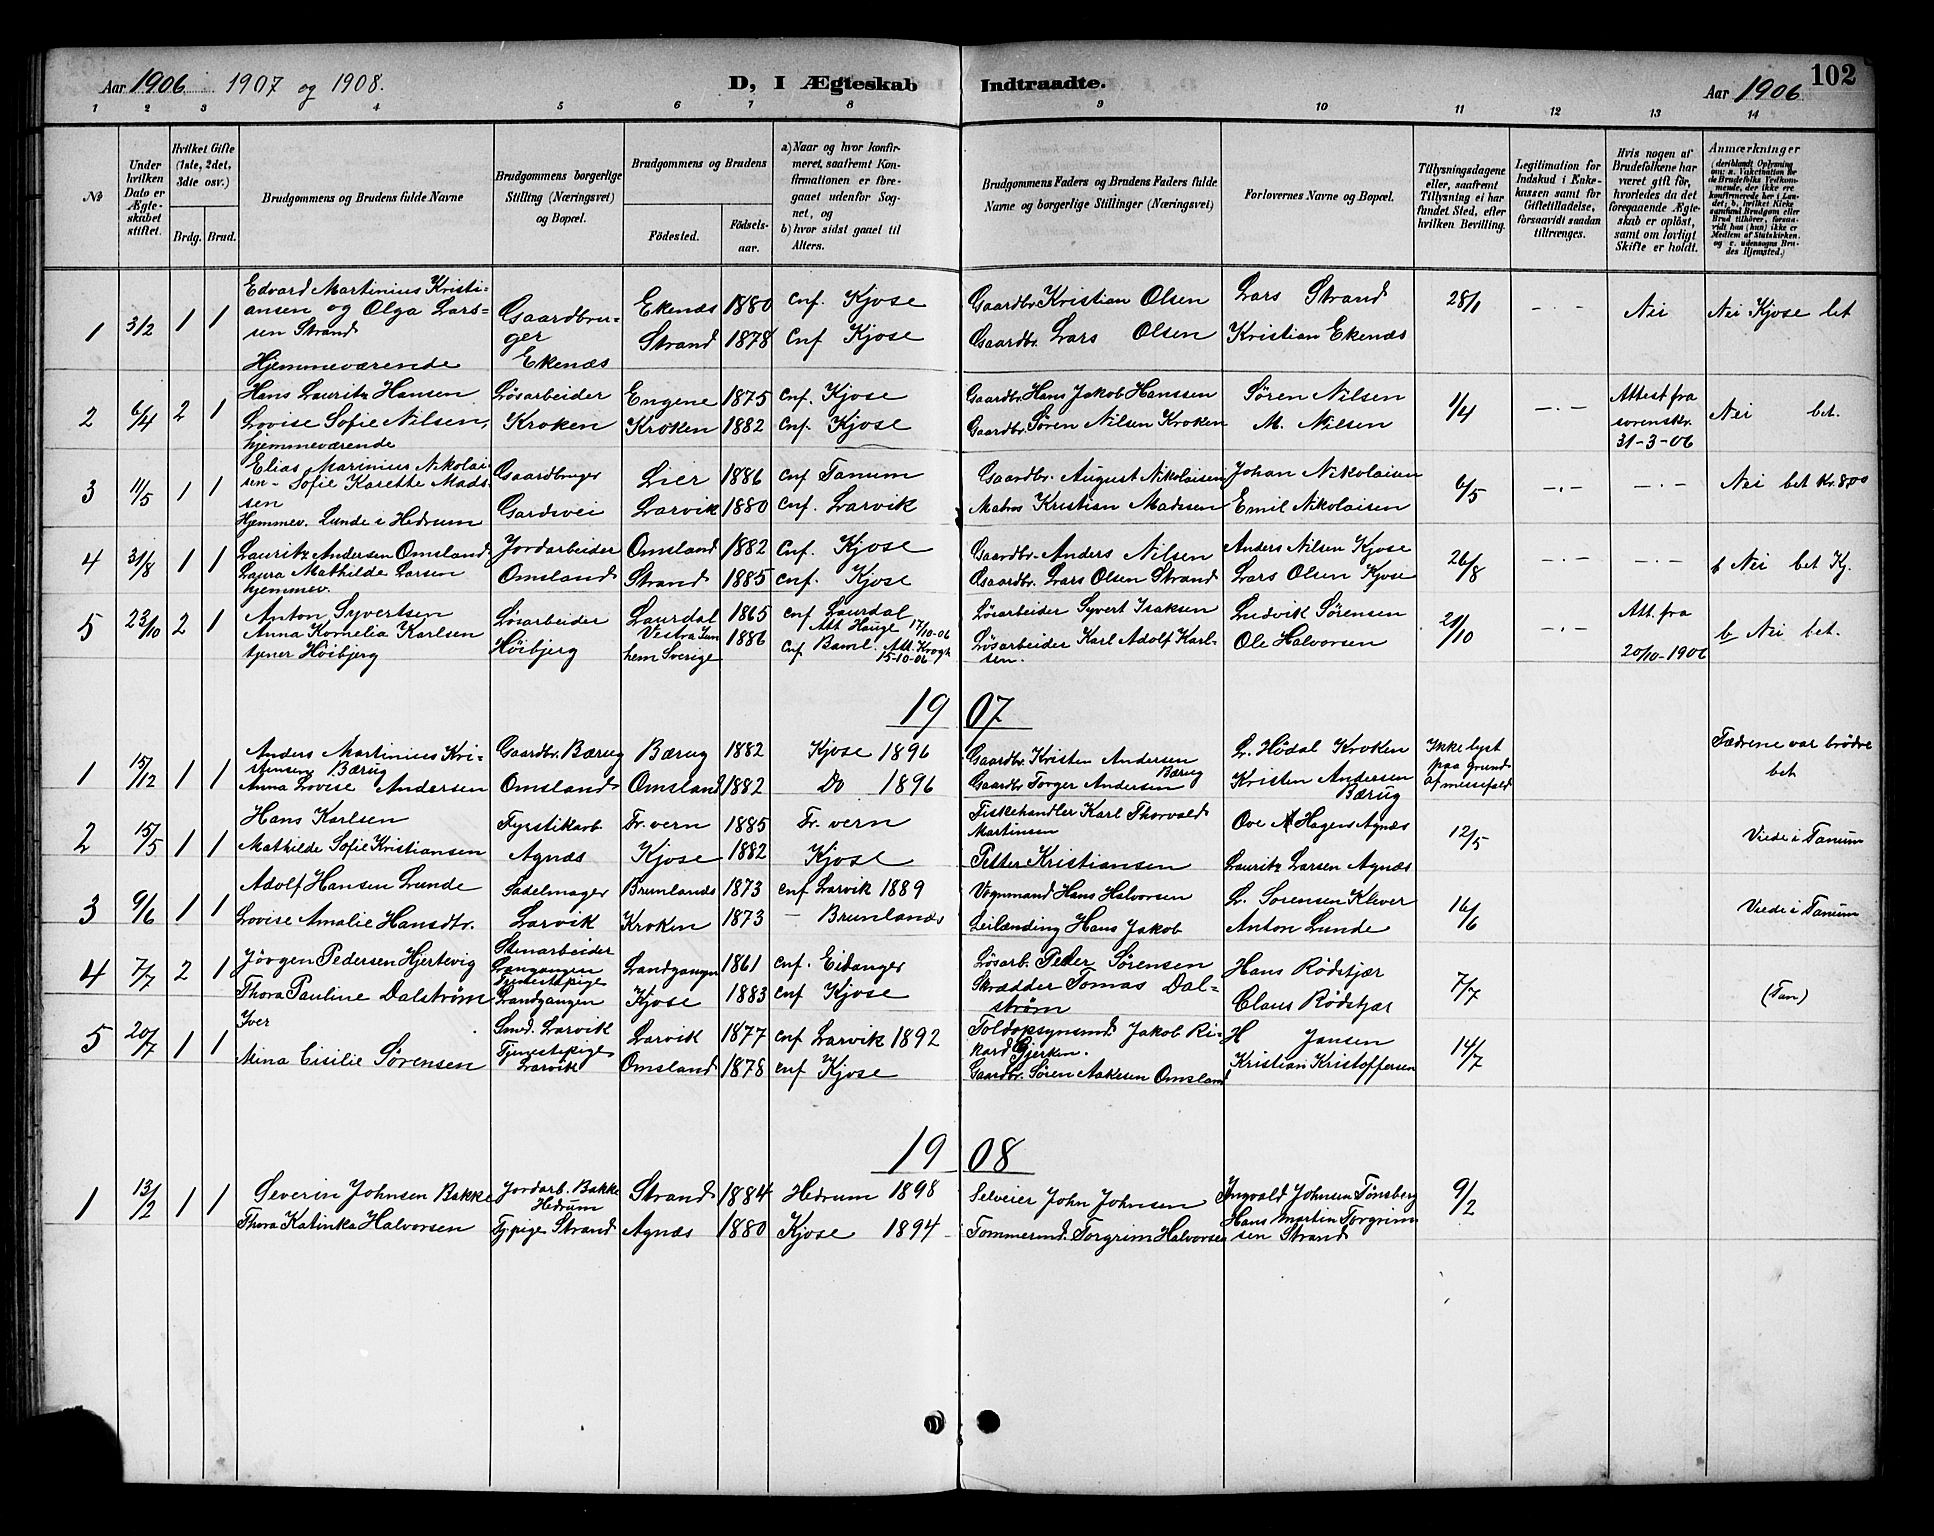 Aar 1906 1907 og 1908.
D, I Ægteskab Indtraadte.
Aar 1906
102
1 2 3 4 5 6 7 8 9 10 11 12 13 14
No
Under hvilken Dato er Ægteskabet stiftet.
Hvilket Gifte (1ste, 2det, 3die osv.)
Brdg. Brud.
Brudgommens og Brudens fulde Navne
Brudgommens borgerlige Stilling (Næringsvei) og Bopæl.
Brudgommens og Brudens
Fødested. Fødselsaar.
a) Naar og hvor konfirmeret, saafremt Konfirmationen er foregaaet udenfor Sognet, og
b) hvor sidst gaaet til Alters.
Brudgommens Faders og Brudens Faders fulde Navne og borgerlige Stillinger (Næringsvei)
Forlovernes Navne og Bopæl.
Tillysningsdagene eller, saafremt Tillysning ei har fundet Sted, efter hvilken Bevilling.
Legitimation for Indskud i Enkekassen samt for Giftetilladelse, forsaavidt saadan tiltrænges.
Hvis nogen af Brudefolkene har været gift før, hvorledes da det foregaaende Ægteskab er opløst, samt om lovligt Skifte er holdt.
Anmærkninger
(deriblandt Oplysning om: a. Vakcination for de Brudefolks Vedkommende, der ikke ere konfirmerede her i Landet; b. hvilket Kirkesamfund Brudgom eller Brud tilhører, forsaavidt han (hun) ikke er Medlem af Statskirken, og c. udensogns Brudes Hjemsted.)
1 3/2 1 1
Edvard Martinius Kristi-
ansen og Olga Lars-
sen Strand
Hjemmeværende
Gaardbru-
ger
Ekenæs
Ekenæs 1880 cnf. Kjose
Strand 1878 cnf Kjose
Gaardbr. Kristian Olsen
Gaardbr. Lars Olsen
Lars Strand
Kristian Ekenæs
28/1 - . - Nei Nei Kjose bet
2 6/4 2 1
Hans Lauritz Hansen
Lovise Sofie Nilsen,
hjemmeværende
Løsarbeider
Kroken
Engene 1875 cnf. Kjose
Kroken 1882 cnf. Kjose
Gaardbr. Hans Jakob Hanssen
Gaardbr. Søren Nilsen Kroken
Søren Nilsen
M. Nilsen
1/4 - . -
Attest fra
sorenskr.
31-3-06
Nei bet.
3 11/5 1 1
Elias Marinius Nikolai
sen - Sofie Karette Mads
sen
Hjemmev. Lunde i Hedrum
Gaardbruger
Gardsvei
Lier 1886 cnf Tanum
Larvik 1880 cnf. Larvik
Gaardbr. August Nikolaisen
Matros Kristian Madssen
Johan Nikolaisen
Emil Nikolaisen
6/5 - . - - . - Nei bet Kr. 8,00
4 31/8 1 1
Lauritz Andersen Omsland
Laura Mathilde Larsen
hjemmev.
Jordarbeider
Omsland
Omsland 1882 cnf. Kjose
Strand 1885 cnf. Kjose
Gaardbr. Anders Nilsen
Gaardbr. Lars Olsen Strand
Anders Nilsen Kjose
Lars Olsen Kjose
26/8 - . - - . - b Nei bet Kj.
5 23/10 2 1
Anton Syvertsen
Anna Kornelia Karlsen
tjener Høibjerg
Løsarbeider
Høibjerg
Laurdal 1865 cnf Laurdal
Att Hauge 17/10-06
Vestra
hem Sverige 1886
cnf Baml. Att. Krogh
15-10-06
Løsarbeider Syvert Isaksen
Løsarbeider Karl Adolf Karl-
sen.
Ludvik Sørensen
Ole Halvorsen
21/10 - . -
Att. fra
20/10-1906
b Nei bet.
19 07
1 15/12 1 1
Anders Martinius Kri-
stensen Bærug
Anna Lovise Andersen
Gaardbr. Bærug
Omsland
Bærug 1882 Kjose 1896
Omsland 1882 Do 1896
Gaardbr. Kristen Andersen
Bærug
Gaardbr Torger Andersen
L. Hødal Kroken
Kristen Andersen
Bærug
Ikke lyst
paa grund
af messefald
Fædrene var brødre
bet
2 15/5 1 1
Hans Karlsen
Mathilde Sofie Kristiansen
Fyrstikarb.
Agnæs
Fr. vern 1885 Fr. vern
Kjose 1882 Kjose
Fiskehandler Karl Thorvald
Martinsen
Petter Kristiansen
Ove A Hagens Agnæs
Lauritz Larsen Agnæs
12/5
Viede i Tanum
3 9/6 1 1
Adolf Hansen Lunde
Lovise Amalie Hansdtr.
Sadelmager
Larvik
Brunlanæs 1873 cnf Larvik 1889
Kroken 1873 - Brunlanæs
Vognmand Hans Halvorsen
Leilænding Hans Jakob
L. Sørensen Klever
Anton Lunde
16/6
Viede i Tanum
4 7/7 2 1
Jørgen Pedersen Hjertevig
Thora Pauline Dalstrøm
Stenarbeider
Langangen
Tjenestepige
Langangen
Landgangen 1861 cnf. Eidanger
Kjose 1883 cnf Kjose
Løsarb. Peder Sørensen
Skrædder Tomas Dal-
strøm
Hans Rødstjær
Claus Rødstjær
7/7
(Tan)
5 20/7 1 1
Iver
Mina Cisilie Sørensen
Smed. Larvik
Tjenestepige
Larvik
Larvik 1877 cnf Larvik 1892
Omsland 1878 cnf Kjose
Toldopsynsmd. Jakob Ri-
kard Gjerken.
Gaardbr. Søren Aakesen Omsland
H Jansen
Kristian Kristoffersen
14/7
19 08
1 13/2 1 1
Severin Johnsen Bakke
Thora Katinka Halvorsen
Jordarb. Bakke
Hedrum
Tj. pige Strand
Strand 1884 Hedrum 1898
Agnæs 1880 Kjose 1894
Selveier John Johnsen
Tømmermd. Torgrim Halvorsen
Ingvald Johnsen Tønsberg
Hans Martin Torgrim
sen Strand
9/2